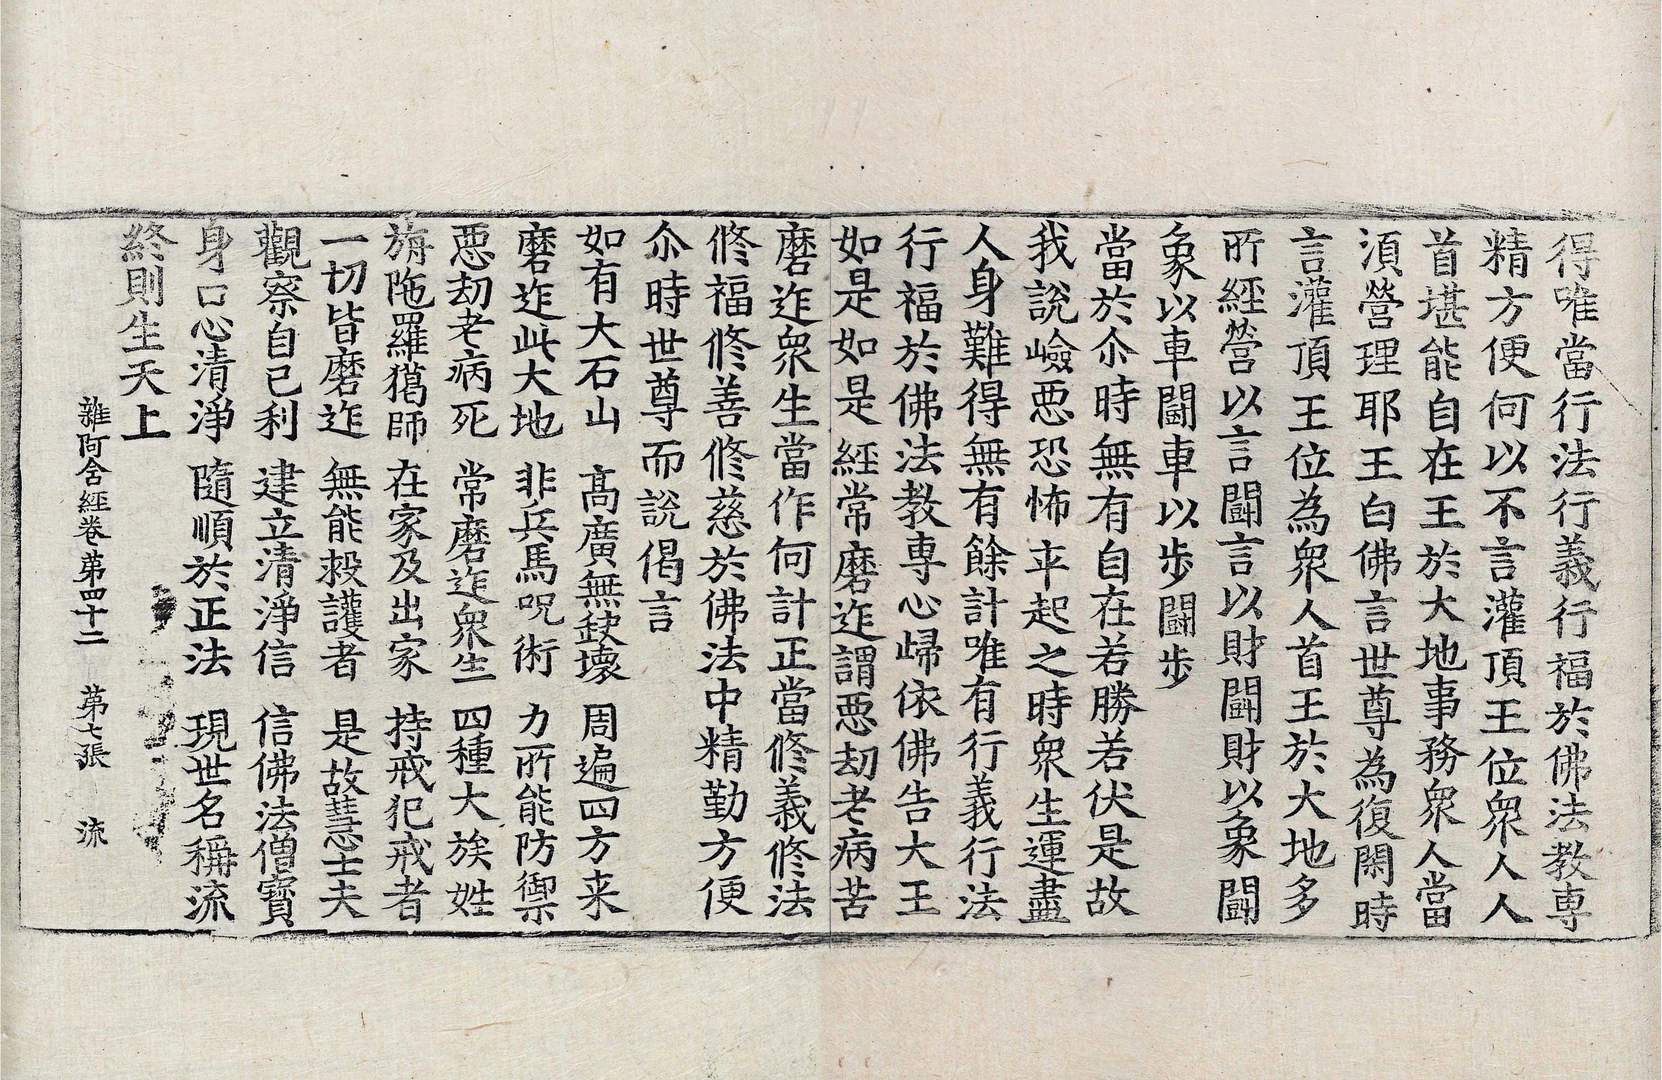 得唯當行法行義行福於佛法教専
精方便何以不言灌頂王位衆人人
首堪能自在王於大地事務衆人當
湏營理耶王白佛言世尊為復閑時
言灌頂王位為衆人首王於大地多
所經營以言闘言以財闘財以象闘
象以車闘車以歩闘歩
當於尒時無有自在若勝若伏是故
我說嶮惡恐怖卒起之時衆生運盡
人身難得無有餘計唯有行義行法
行福於佛法教専心歸依佛告大王
如是如是經常磨迮謂惡劫老病苦
磨迮衆生當作何計正當修義修法
修福修善修慈於佛法中精勤方便
尒時世尊而說偈言
如有大石山 高廣無缺壞 周遍四方来
磨迮此大地 非兵馬呪術 力所能防禦
惡劫老病死 常磨迮衆生 四種大族姓
旃陁羅獦師 在家及出家 持戒犯戒者
一切皆磨迮 無能救護者 是故慧士夫
觀察自己利 建立清淨信 信佛法僧寶
身口心清淨 隨順於正法 現世名稱流
終則生天上
雜阿含經卷第四十二 第七張 流